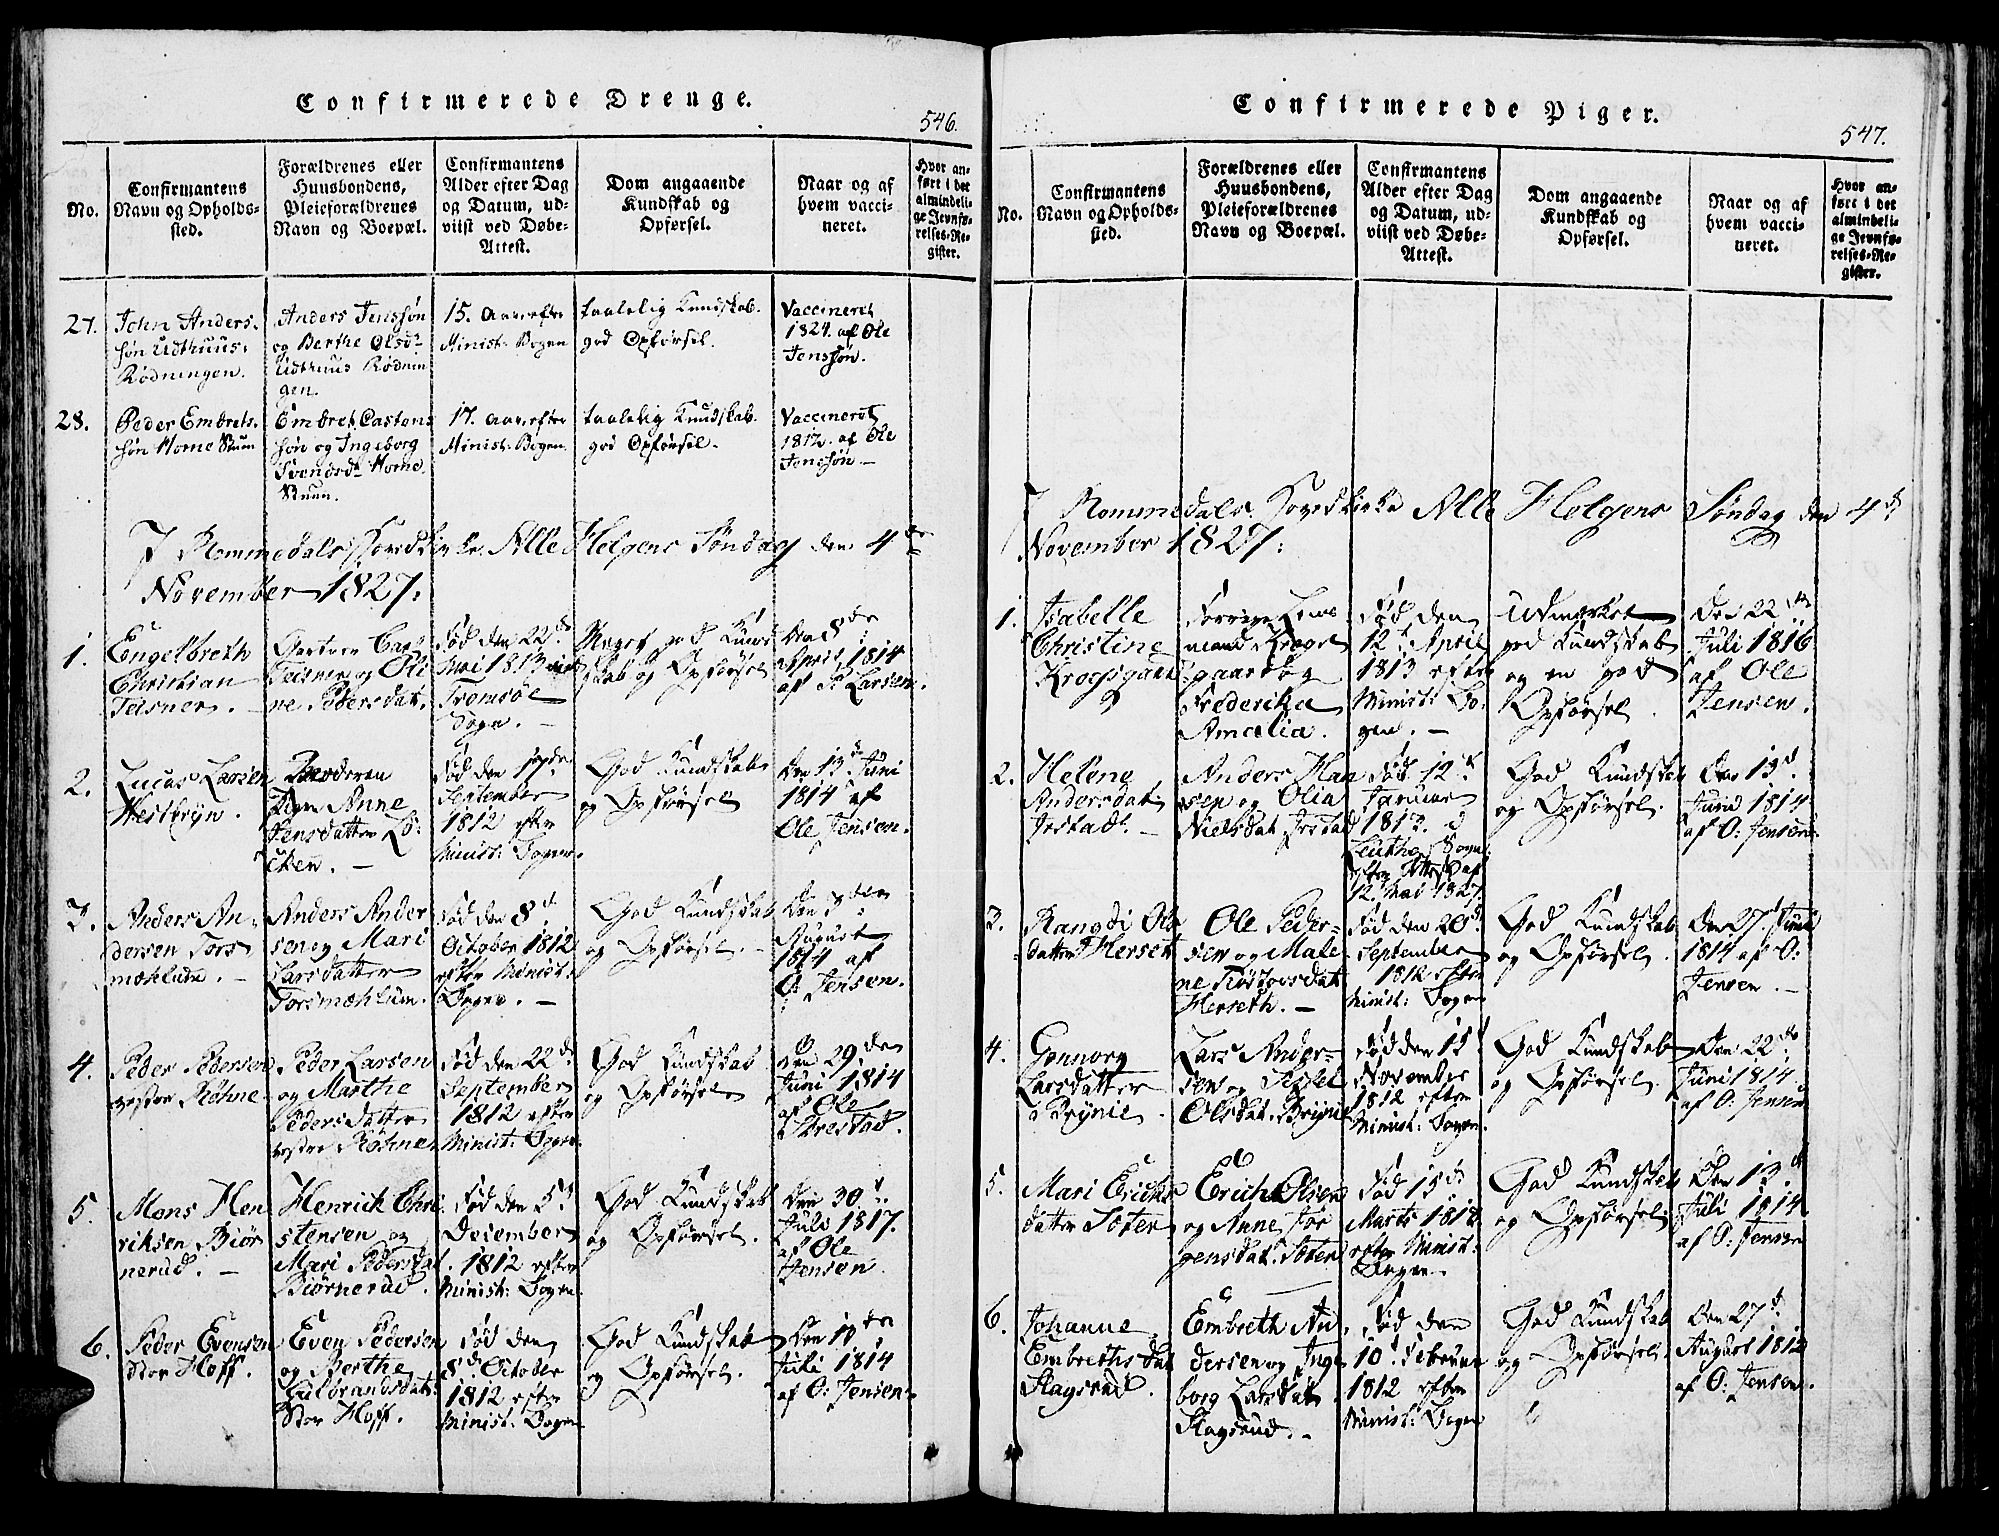 Confirmerede Drenge.
546.
No.
Confirmantens
Navn og Opholds-
sted.
Forældrenes eller
Huusbondens,
Pleieforældrenes
Navn og Boepæl.
Confirmantens
Alder efter Dag
og Datum, ud-
viist ved Døbe-
Attest.
Dom angaaende
Kundskab og
Opførsel.
Naar og af
hvem vacci-
neret.
Hvor an-
ført i det
almindeli-
ge Jevnfø-
relses-Re-
gister.
27.
John Anders-
søn Udthuus:
Rødningen.
Anders Jenssøn
og Berthe Olsd.
Udthuus Rødnin
gen.
15. Aar efter
Minist: Bogen
taalelig Kundskab.
god Opførsel.
Vaccineret
1824. af Ole
Jenssøn.
28.
Peder Embrets-
søn Horne
Embret Castens
søn og Ingeborg
Horne
17. Aar efter
Minist: Bogen
taalelig Kundskab.
god Opførsel.
Vaccineret
1812. af Ole
Jenssøn
I Rommedals Hovedkirke Alle Helgens Søndag den 4de
November 1827:
1.
Engelbreth
Christian
Teisner.
Teisner og Oli
ne Pedersdat.
Født den 22de
Mai 1813
Tromsöe
Sogn.
Meget god Kund
skab og Opførsel
Den 8de
April 1814
af P. Larsen.
2.
Lucas Larsen
Westbryn.
Pigen Anne
Jensdatter Lö:
cken.
Fød den
September
1812 efter
Minist: Bogen.
God Kundskab
og Opførsel
Den 13d Juni
1814 af
Ole Jensen.
3.
Anders An-
dersen Tors
mæhlum.
Anders Ander
sen og Mari
Larsdatter
Torsmæhlum.
Fød den 8d
October 1812
efter Minist:
Bogen.
God Kundskab
og Opførsel.
Den
August
1814 af
O: Jensen.
4.
Peder Pedersen
vestre Røhne
Peder Larsen
og Marthe
Peders Datter
vestre Røhne
Fød den 22de
September
1812 efter
Minist: Bogen
God Kundskab
og Opførsel
Den 29den
Juni 1814
af Ole
5.
Mons Hen
riksen Biör
nerud.
Henrick Chri
stensen og
Mari Pedersdat.
Biørnerud.
Fød den 5d
December
1812 efter
Minist: Bogen.
God Kundskab
og Opførsel.
Den 30d
Juli 1817.
af Ole
Jensen.
6.
Peder Evensen
Stor Hoff.
Even Pedersen
og Berthe
Gulbrandsdat:
Stor Hoff.
Fød den
8de October
1812 efter
Minist: Bogen
God Kundskab
og Opførsel.
Den
Juli 1814
af O: Jensen
Confirmerede Piger.
547.
No.
Confirmantens
Navn og Opholds-
sted.
Forældrenes eller
Huusbondens,
Pleieforældrenes
Navn og Boepæl.
Confirmantens
Alder efter Dag
og Datum, ud-
viist ved Døbe-
Attest.
Dom angaaende
Kundskab og
Opførsel.
Naar og af
hvem vacci-
neret.
Hvor an-
ført i det
almindeli-
ge Jevnfø-
relses-Re-
gister.
I Rommedals Hovedkirke Alle Helgens Søndag den 4d
November 1827:
1.
Isabelle
Christine
Krogsgaard
Krogs
gaard og
Frederika
Amalia.
Fød den
12t April
1813 efter
Minist: Bo-
gen.
Udmærket
god Kundskab
og en god
Opførsel.
Den 22de
Juli 1816
af Ole
Jensen.
2.
Helene
Andersdat
Anders Han
sen og Olia
Nielsdat
Fød 12t
Januar
1813.
Sogn
efter Attest af
12. Mai 1827.
God Kundskab
og Opførsel.
Den 13d
Juni 1814
af O: Jensen
3.
Rangdi Ols
datter Herset
Ole Peder-
sen og Male
ne
Herseth.
Fød den 20d
September
1812 efter
Minist: Bogen
God Kundskab
og Opførsel.
Den 27 Juni
1814 af O:
Jensen.
4.
Gunnorg
Larsdatter
Brynie
Lars Ander-
sen og Sissel
Olsdat. Brynie
Fød den 15d
November
1812 efter
Minist: Bogen.
God Kundskab
og Opførsel.
Den 22de
Juni 1814
af O: Jensen
5.
Mari Erichs
datter Soter
Erich Olsen
og Anne Jør
gensdat. Soter
Fød 15de
Marts
efter Minist:
Bogen
God Kundskab
og Opførsel
Den 13d
Juli 1814
af O: Jensen
6.
Johanne
Embreths dat
Slagsrud.
Embreth An
dersen og Inge
borg Larsdat
Slagsrud.
Fød den
10d Februar
1812 efter
Minist: Bogen
God Kundskab
og Opførsel.
Den 27d
August
af O: Jensen.